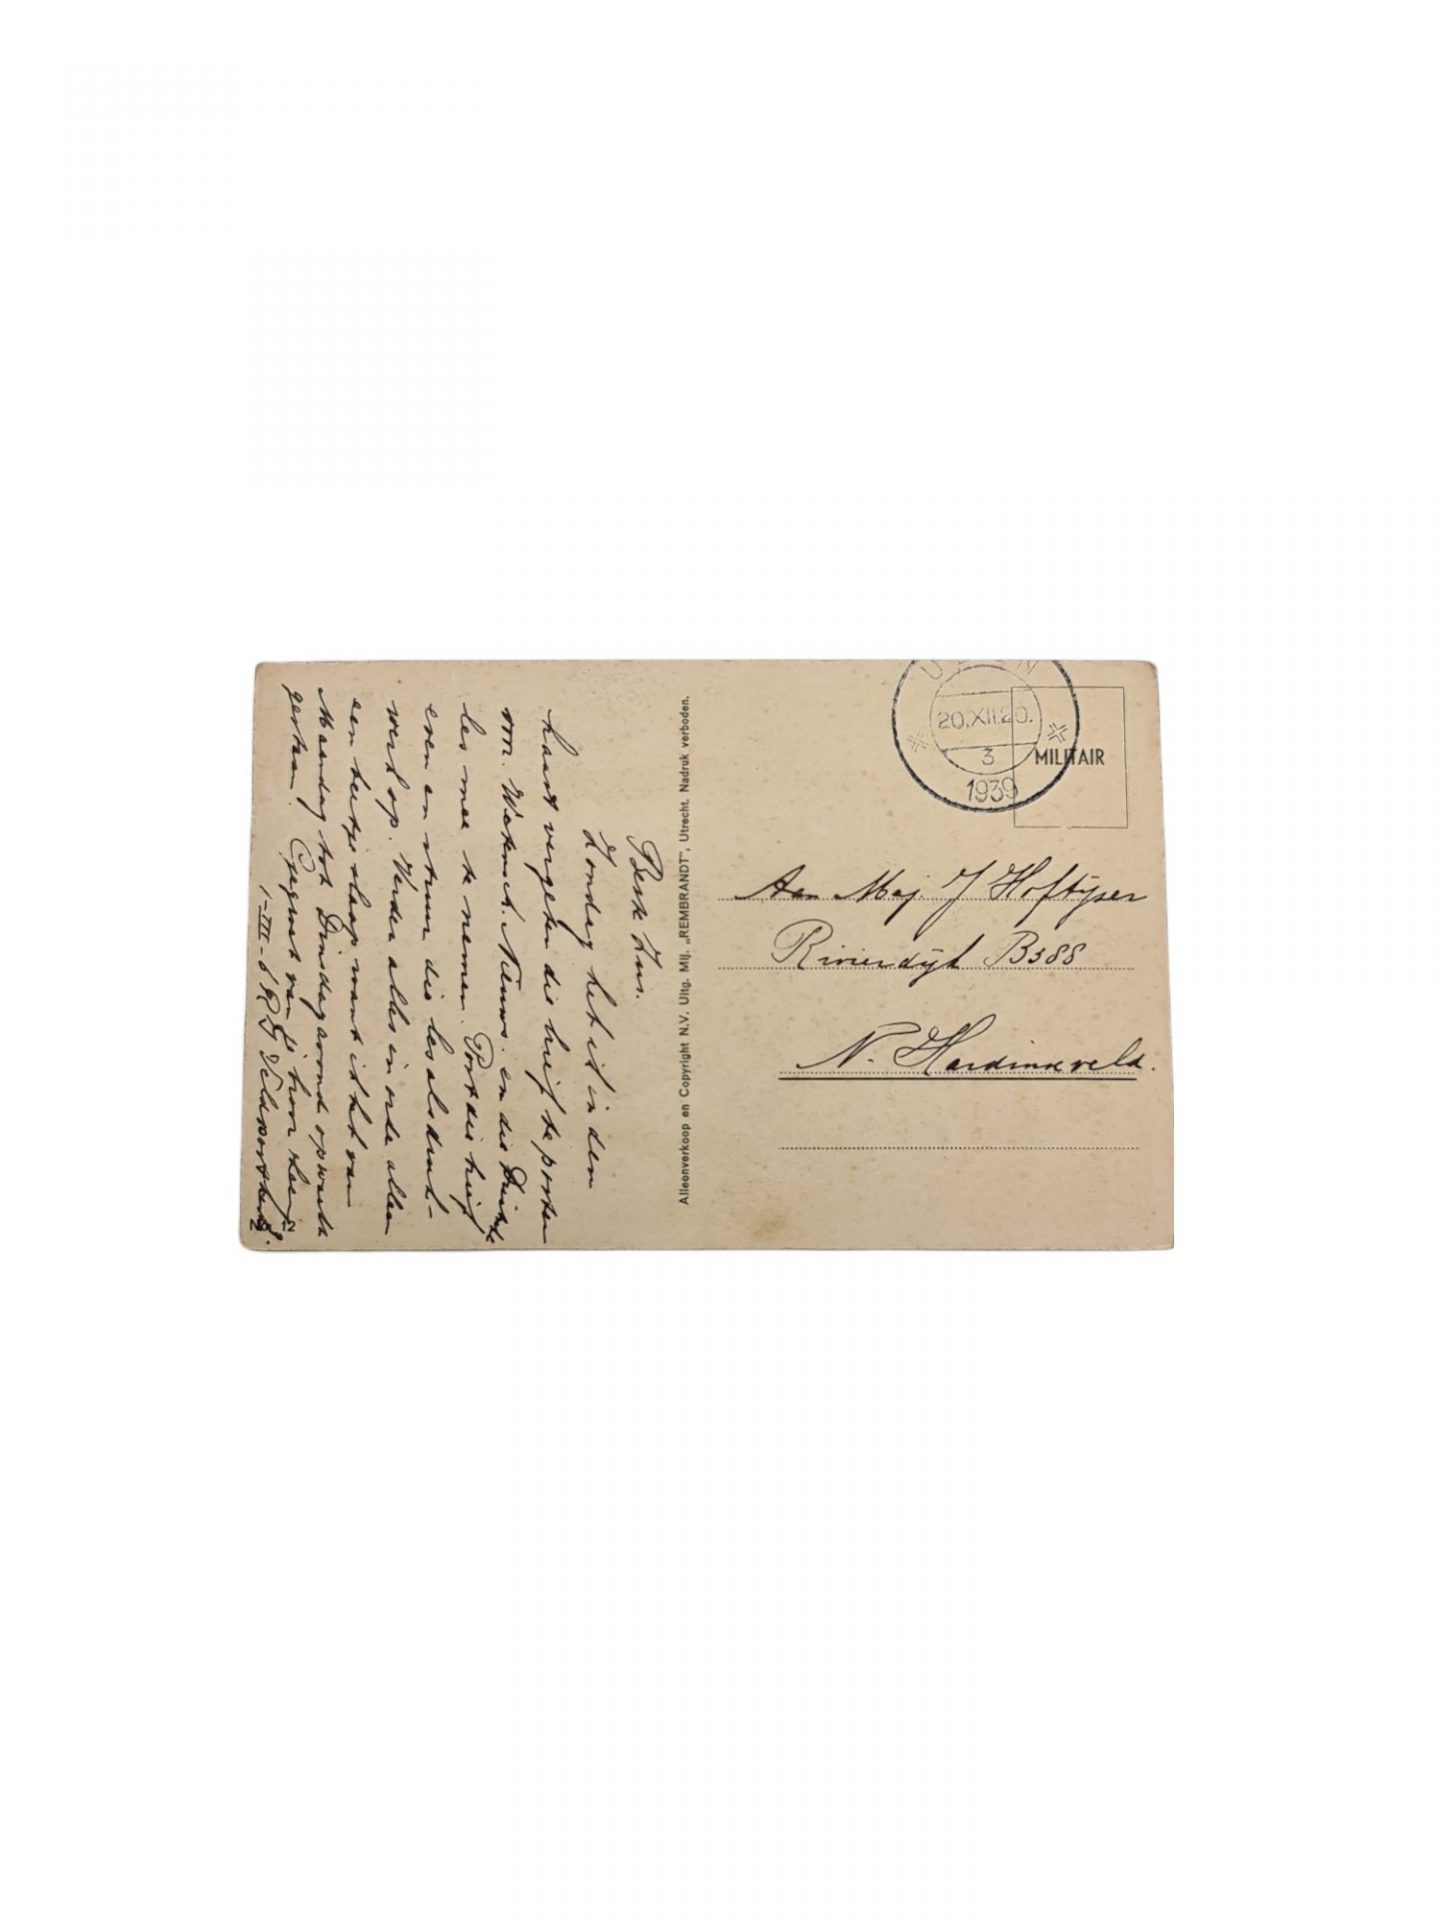 Beste Zus.
Zondag heb ik in den
haast vergeten die brief te posten
v.m. Weken. Nieuws. en die
les mee te nemen. Post die brief
even en stuur die les als druk-
werk op. Verder alles in orde alleen
een beetje slaap want ik heb van
Maandag tot Dinsdagavond op wacht
gestaan. Gegroet van je broer
1-III-6 R.I. Veldpost
Alleenverkoop en Copyright N.V. Uitg. Mij. „REMBRANDT", Utrecht. Nadruk verboden.
20.XII.20.
3
1939
MILITAIR
Aan Mej. J Hoftijser
Rivierdijk B388
N. Hardinxveld.